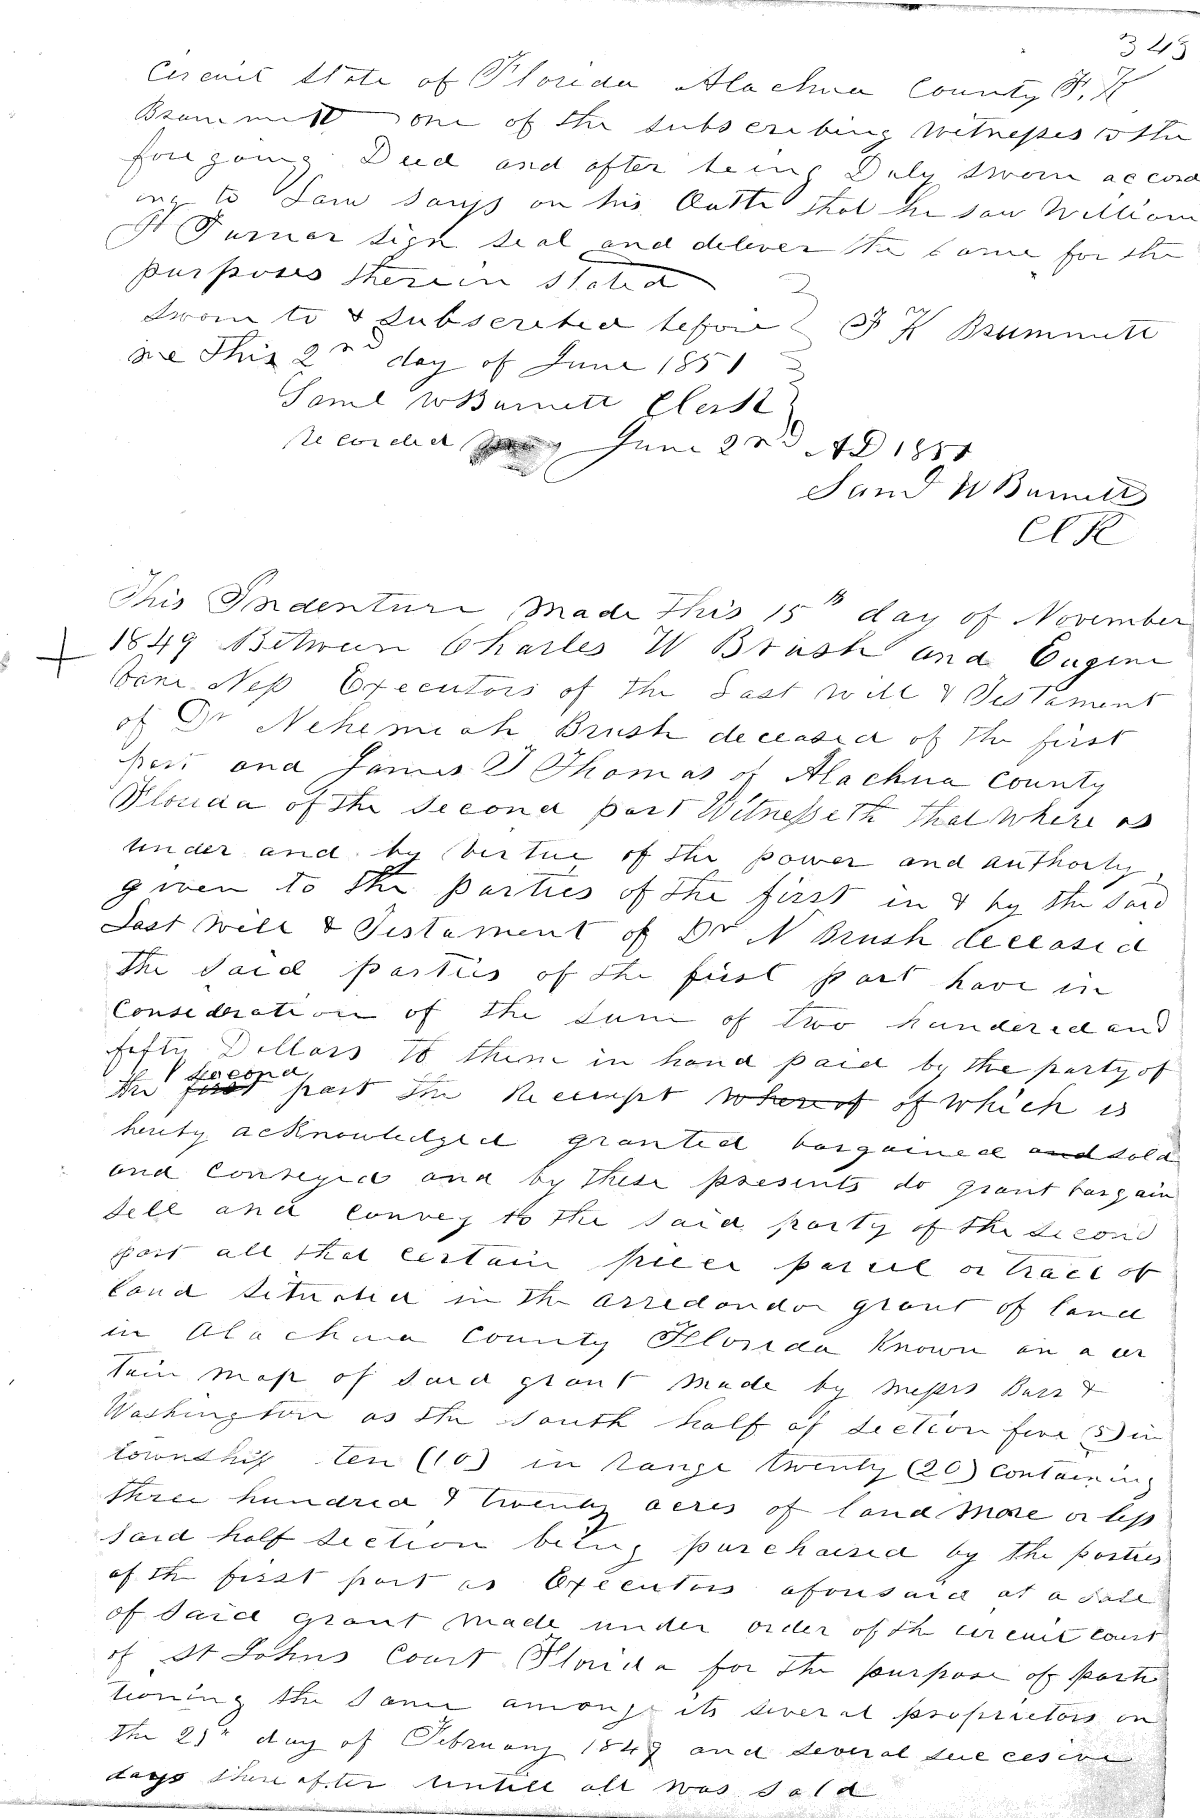 343
Circuit State of Florida Alachua County F. K
Brummett one of the subscribing Witnesses to the
fore going Deed and after being Duly sworn accord
ing to Law says on his Oath that he saw William
H Turner sign seal and deliver the same for the
purposes therein stated
sworn to & subscribed before F K Brummett
me This 2nd day of June 1851
Saml W Burnett Clerk
recorded June 2nd AD 1851
Saml W Burnett
Clk
This Indenture made this 15th day of November
1849 Between Charles W Brush and Eugene
Van Ness Executors of the Last Will & Testament
of Dr Nehemiah Brush deceased of the first
part and James T Thomas of Alachua County
Florida of the second part Witnesseth that where as
under and by virtue of the power and authorty
given to the parties of the first in & by the said
Last Will & Testament of Dr N Brush deceased
the said parties of the first part have in
Consideration of the sum of two hundered and
fifty Dollars to them in hand paid by the party of
the first second part the Receipt whereof of which is
hereby acknowledged granted bargained and sold
and conveyed and by these presents do grant bargain
sell and convey to the said party of the second
part all that certain piece parcel or tract of
land situated in the arredondo grant of land
in Alachua County Florida Known on a cer
tain map of said grant made by messrs Burr &
Washington as the south half of section five (5) in
township ten (10) in range twenty (20) containing
three hundred & twenty acres of land more or less
said half section being purchased by the parties
of the first part as Executors aforesaid at a sale
of said grant made under order of the circuit court
of St Johns Court Florida for the purpose of parti
tioning the same among its several proprietors on
the day of February 1849 and several succesive
days there after untill all was sold